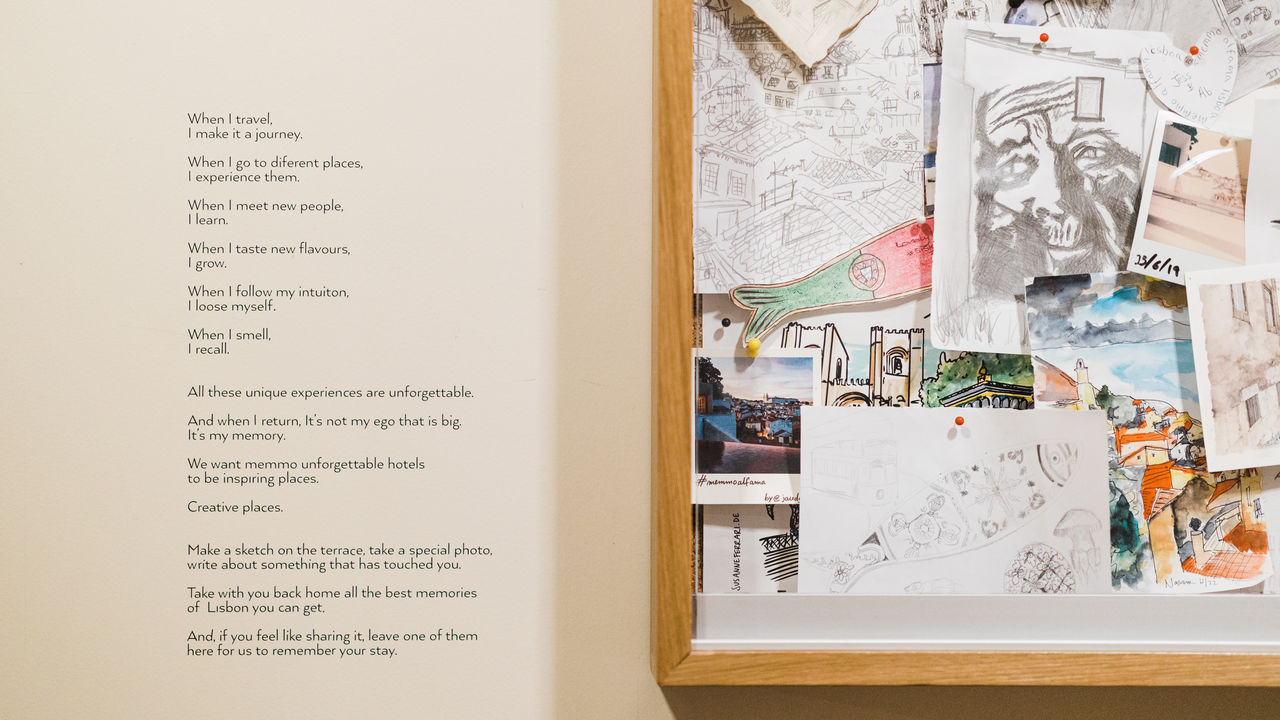 When I travel,
I make it a journey.
When I go to diferent places,
I experience them.
When I meet new people,
I learn.
When I taste new flavours,
I grow.
When I follow my intuiton,
I loose myself.
When I smell,
I recall.
All these unique experiences are unforgettable.
And when I return, It's not my ego that is big.
It's my memory.
We want memmo unforgettable hotels
to be inspiring places.
Creative places.
Make a sketch on the terrace, take a special photo,
write about something that has touched you.
Take with you back home all the best memories
of Lisbon you can get.
And, if you feel like sharing it, leave one of them
here for us to remember your stay.
25/6/19
#memmoalfama
by@
SUSANNEFERRARI.DE